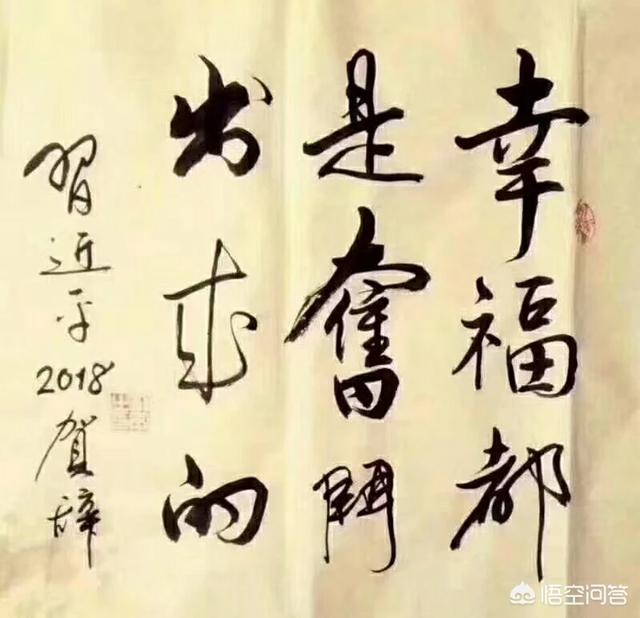 幸福都
是奮鬥
出来的
習近平2018賀辞
悟空问答